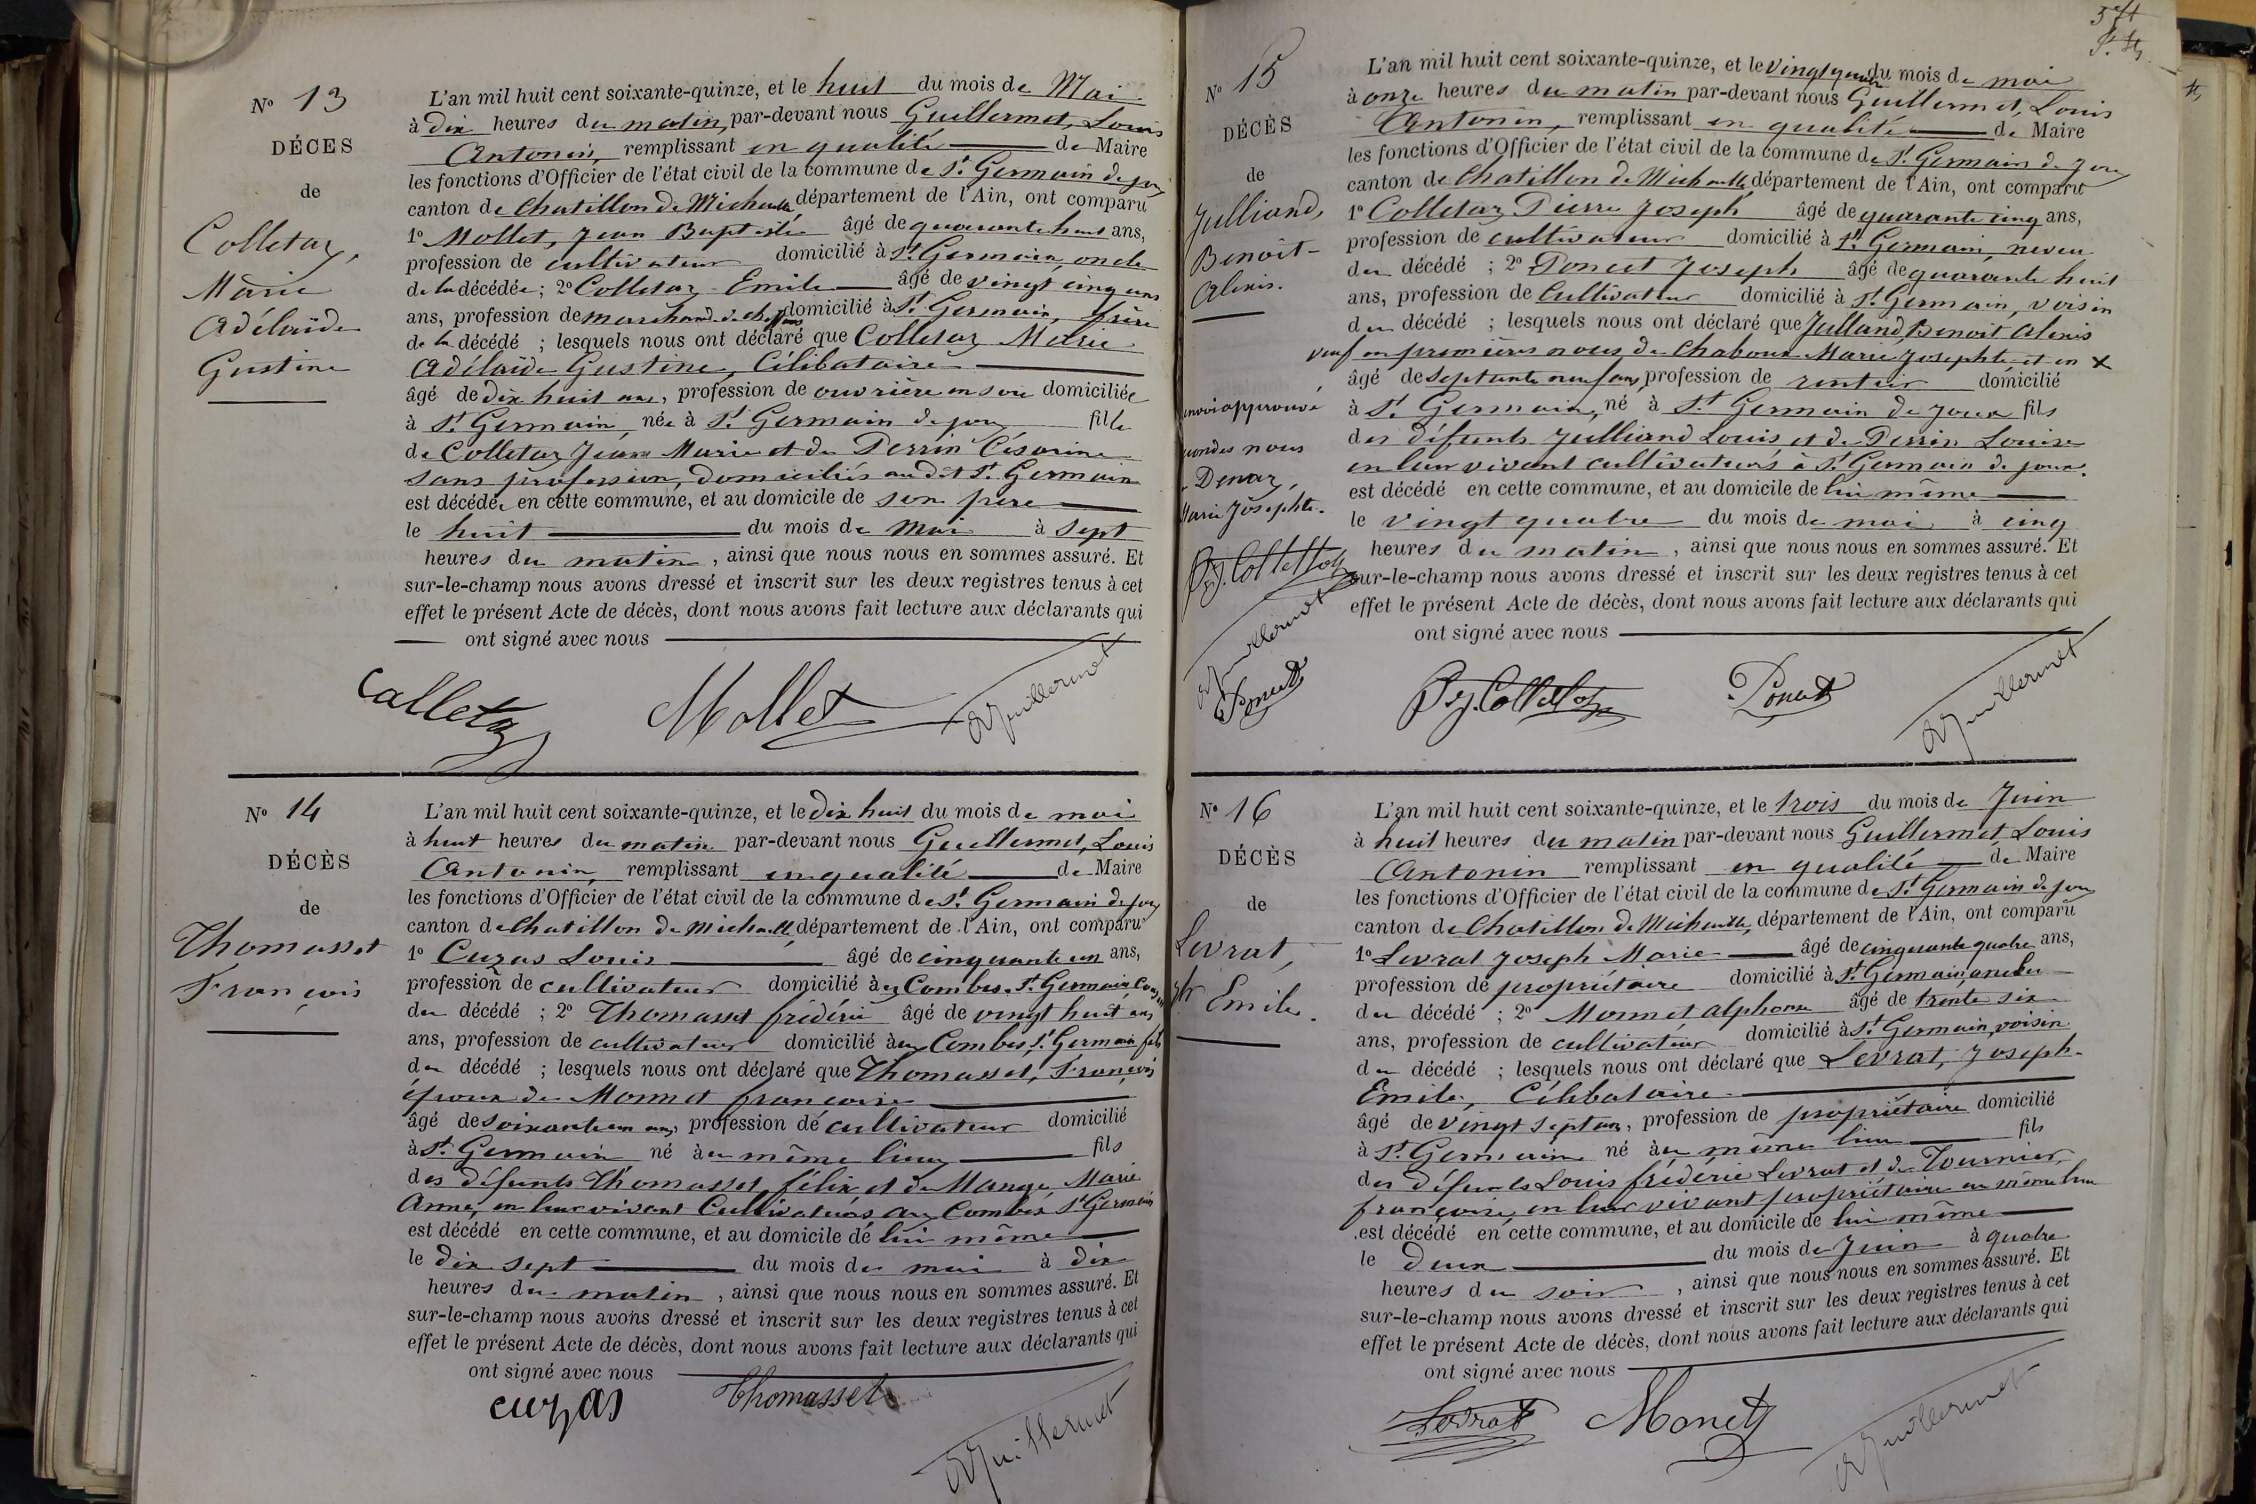 N° 13
DÉCES
de
Colletaz,
Marie
Adélaïde
Gustine
L'an mil huit cent soixante-quinze, et le huit du mois de Mai
à dix heures du matin, par-devant nous Guillermet, Louis
Antonin, remplissant en qualité de Maire
les fonctions d'Officier de l'état civil de la commune de St Germain de joux
canton de Chatillon de Michaille, département de l'Ain, ont comparu
1° Mollet, Jean Baptiste âgé de quarante huit ans,
profession de cultivateur domicilié à St Germain, oncle
de la décédée ; 2° Colletaz Emile âgé de vingt cinq ans
ans, profession de marchand de domicilié à St Germain, frère
de la décédé ; lesquels nous ont déclaré que Colletaz Marie
Adélaïde Gustine, Célibataire
âgé de dix huit ans, profession de ouvrière en soie domiciliée
à St Germain, née à St Germain de joux fille
de Colletaz Jean Marie et de Perrin Césarine
sans profession, domiciliés au dit St Germain
est décédée en cette commune, et au domicile de son père
le huit du mois de Mai à sept
heures du matin, ainsi que nous nous en sommes assuré. Et
sur-le-champ nous avons dressé et inscrit sur les deux registres tenus à cet
effet le présent Acte de décès, dont nous avons fait lecture aux déclarants qui
ont signé avec nous
Colletaz Mollet Guillermet
N° 14
DÉCÈS
de
Thomasset
François
L'an mil huit cent soixante-quinze, et le dix huit du mois de mai
à huit heures du matin par-devant nous Guillermet, Louis
Antonin, remplissant en qualité de Maire
les fonctions d'Officier de l'état civil de la commune de St Germain de joux
canton de Chatillon de Michaille, département de l'Ain, ont comparu
1° Cuzas Louis âgé de cinquante un ans,
profession de cultivateur domicilié à ux Combes, St Germain
du décédé ; 2° Thomasset frédéric âgé de vingt huit ans
ans, profession de cultivateur domicilié à ux Combes, St Germain fils
du décédé ; lesquels nous ont déclaré que Thomasset, François
époux de Monnet françoise
âgé de soixante un ans, profession de cultivateur domicilié
à St Germain né à u même lieu fils
des défunts Thomasset félix et de Mange, Marie
Anne, en leur vivant Cultivateurs aux Combes St Germain
est décédé en cette commune, et au domicile de lui même
le dix sept du mois de mai à dix
heures du matin, ainsi que nous nous en sommes assuré. Et
sur-le-champ nous avons dressé et inscrit sur les deux registres tenus à cet
effet le présent Acte de décès, dont nous avons fait lecture aux déclarants qui
ont signé avec nous
cuzas Thomasset Guillermet
N° 15
DÉCÈS
de
Julliand,
Benoît
Alexis.
L'an mil huit cent soixante-quinze, et le vingt quatre du mois de mai
à onze heures du matin par-devant nous Guillermet, Louis
Antonin, remplissant en qualité de Maire
les fonctions d'Officier de l'état civil de la commune de St Germain de joux
canton de Chatillon de Michaille, département de l'Ain, ont comparu
1° Colletaz Pierre Joseph âgé de quarante cinq ans,
profession de cultivateur domicilié à St Germain, neveu
du décédé ; 2° Poncet Joseph âgé de quarante huit
ans, profession de Cultivateur domicilié à St Germain, voisin
du décédé ; lesquels nous ont déclaré que Julliand, Benoît Alexis
veuf en premières noces de Chaboux Marie Josephte et en x
âgé de septante neuf ans, profession de rentier domicilié
à St Germain, né à St Germain de joux fils
des défunts Julliand Louis et de Perrin Louise
en leur vivant cultivateurs à St Germain de joux.
est décédé en cette commune, et au domicile de lui même
le vingt quatre du mois de mai à cinq
heures du matin, ainsi que nous nous en sommes assuré. Et
sur-le-champ nous avons dressé et inscrit sur les deux registres tenus à cet
effet le présent Acte de décès, dont nous avons fait lecture aux déclarants qui
ont signé avec nous
renvoi approuvé
Marie Josephte.
P. J. Colletaz
Guillermet
Poncet
P. J. Colletaz Poncet Guillermet
N° 16
DÉCÈS
de
Levrat,
Jh Emile.
L'an mil huit cent soixante-quinze, et le trois du mois de Juin
à huit heures du matin par-devant nous Guillermet, Louis
Antonin remplissant en qualité de Maire
les fonctions d'Officier de l'état civil de la commune de St Germain de joux
canton de Chatillon de Michaille, département de l'Ain, ont comparu
1° Levrat Joseph Marie âgé de cinquante quatre ans,
profession de propriétaire domicilié à St Germain, oncle
du décédé ; 2° Monnet Alphonse âgé de trente six
ans, profession de cultivateur domicilié à St Germain, voisin
du décédé ; lesquels nous ont déclaré que Levrat, Joseph
Emile, Célibataire
âgé de vingt sept ans, profession de propriétaire domicilié
à St Germain né à u même lieu fils
des défunts Louis frédéric Levrat et de Tournier
françoise, en leur vivant propriétaire au même lieu
est décédé en cette commune, et au domicile de lui même
le deux du mois de Juin à quatre
heures du soir, ainsi que nous nous en sommes assuré. Et
sur-le-champ nous avons dressé et inscrit sur les deux registres tenus à cet
effet le présent Acte de décès, dont nous avons fait lecture aux déclarants qui
ont signé avec nous
Levrat Monet Guillermet